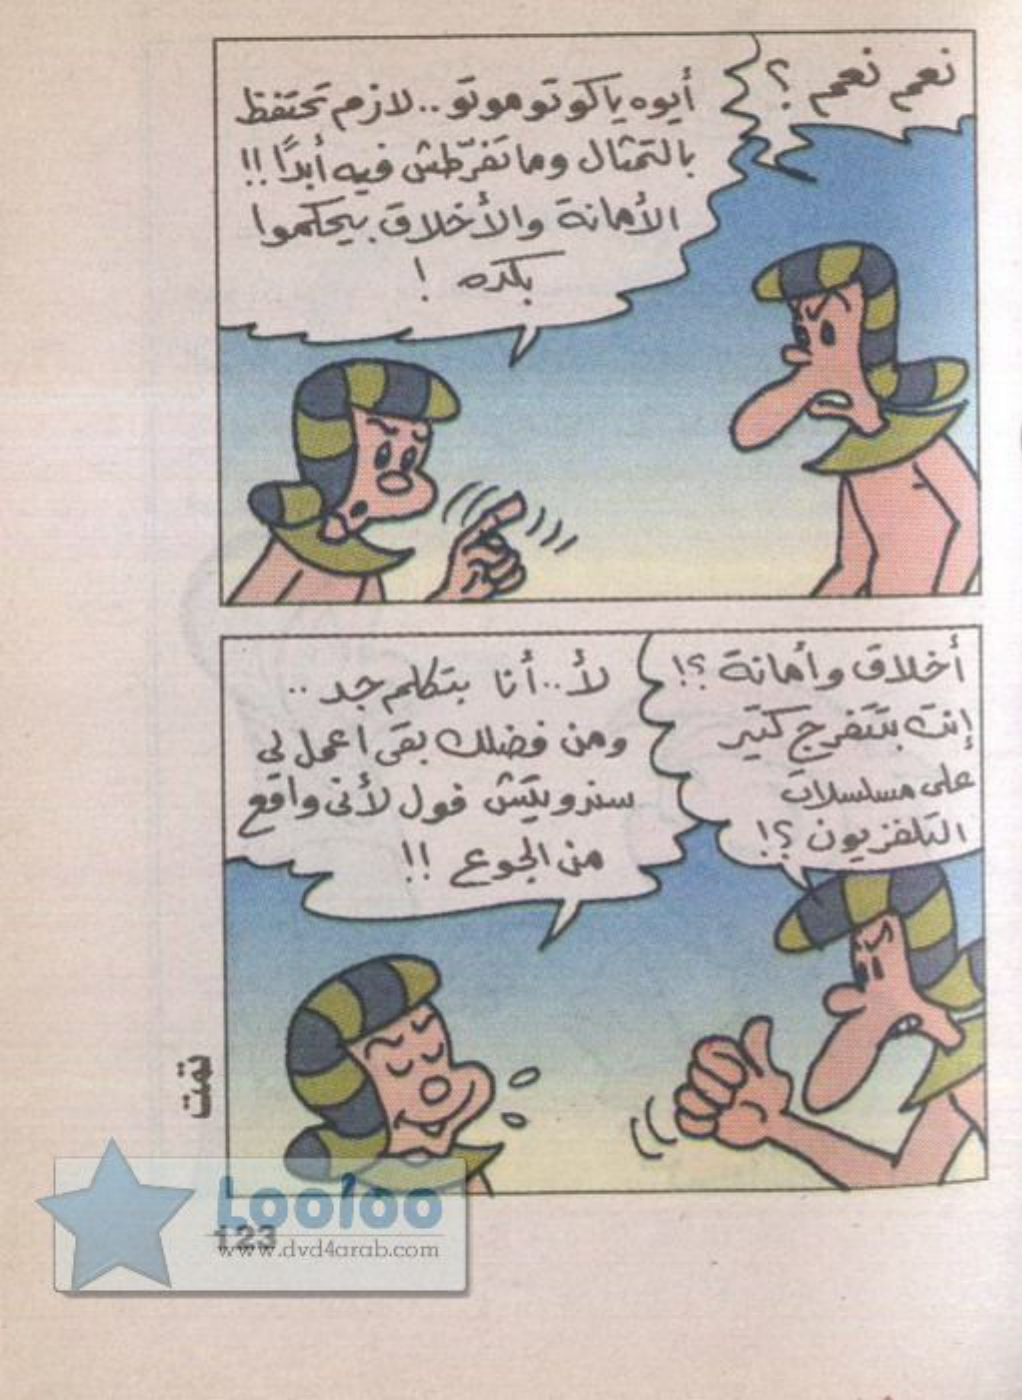 نعم نعم ؟
أيوه ياكوتوموتو..لازم تحتفظ
بالتمثال وماتفرّطش فيه أبدًا !!
الأمانة والأخلاق بيحكموا
بكده !
أخلاق وأمانة ؟!
إنت بتتفرج كتير
على مسلسلات
التلفزيون ؟!
لأ..أنا بتكلم جد ..
ومن فضلك بقى اعمل لى
سندوتش فول لأنى واقع
من الجوع !!
تمت
Looloo
123
www.dvd4arab.com